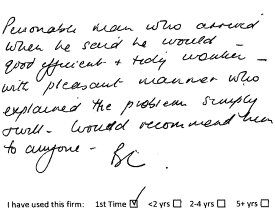 Personable man who arrived
when he said he would -
good efficient + tidy worker -
with pleasant manner who
explained the problem simply
+ well - Would recommend him
to anyone - BC.
I have used this firm: 1st Time ☑ <2 yrs ☐ 2-4 yrs ☐ 5+ yrs ☐